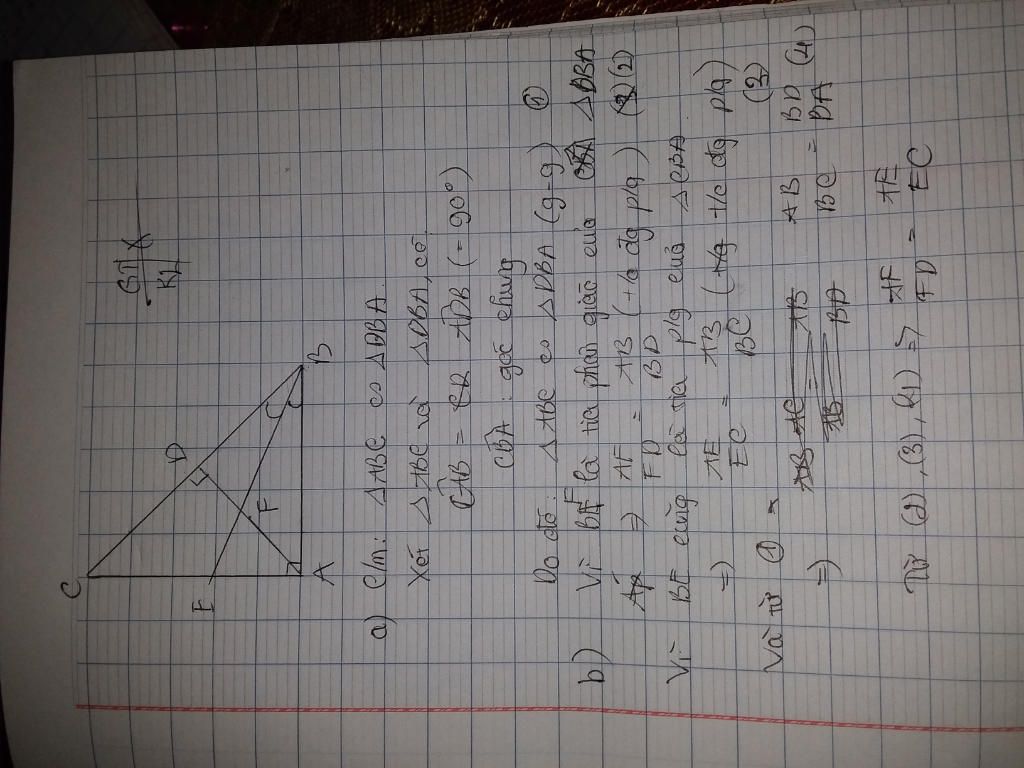 GT
KL
C
D
E
F
A
B
a) C/m: △ABC ∽ △DBA.
Xét △ABC và △DBA, có
CAB = ADB (= 90°)
CBA : góc chung
Do đó: △ABC ∽ △DBA (g-g) (1)
b) Vì BF là tia phân giác của △DBA
=> AF/FD = AB/BD (t/c đg p/g) (2)
Vì BE cũng là tia p/g của △CBA
=> AE/EC = AB/BC (t/c đg p/g) (3)
Và từ (1)
=> AB/BC = BD/BA (4)
Từ (2), (3), (4) => AF/FD = AE/EC